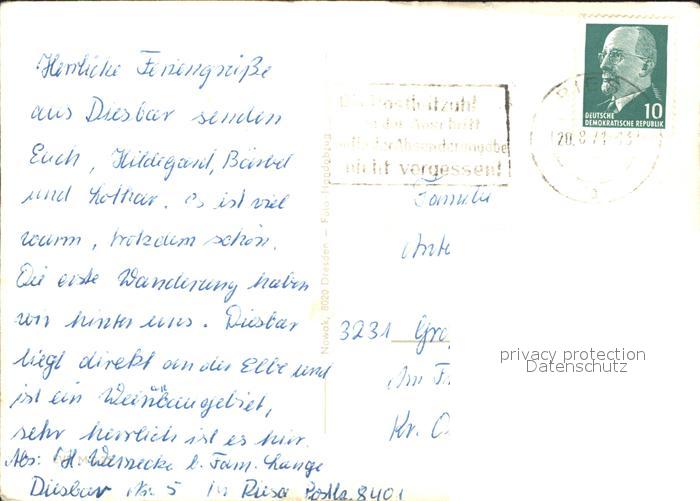 Herrliche Feriengrüße
aus Diesbar senden
Euch, Hildegard, Bärbel
und Lothar. Es ist viel
warm, trotzdem schön.
Die erste Wanderung haben
wir hinter uns. Diesbar
liegt direkt an der Elbe und
ist ein Weinanbaugebiet,
sehr herrlich ist es hier.
Abs: H. Wernecke b. Fam. Lange
Diesbar Nr. 5 Riesa Postlz. 8401
Nowak, 8020 Dresden - Foto
Die Postleitzahl
in der Anschrift
und Absenderangabe
nicht vergessen!
20.8.71
10
DEUTSCHE
DEMOKRATISCHE REPUBLIK
Familie
3231
Kr.
privacy protection
Datenschutz